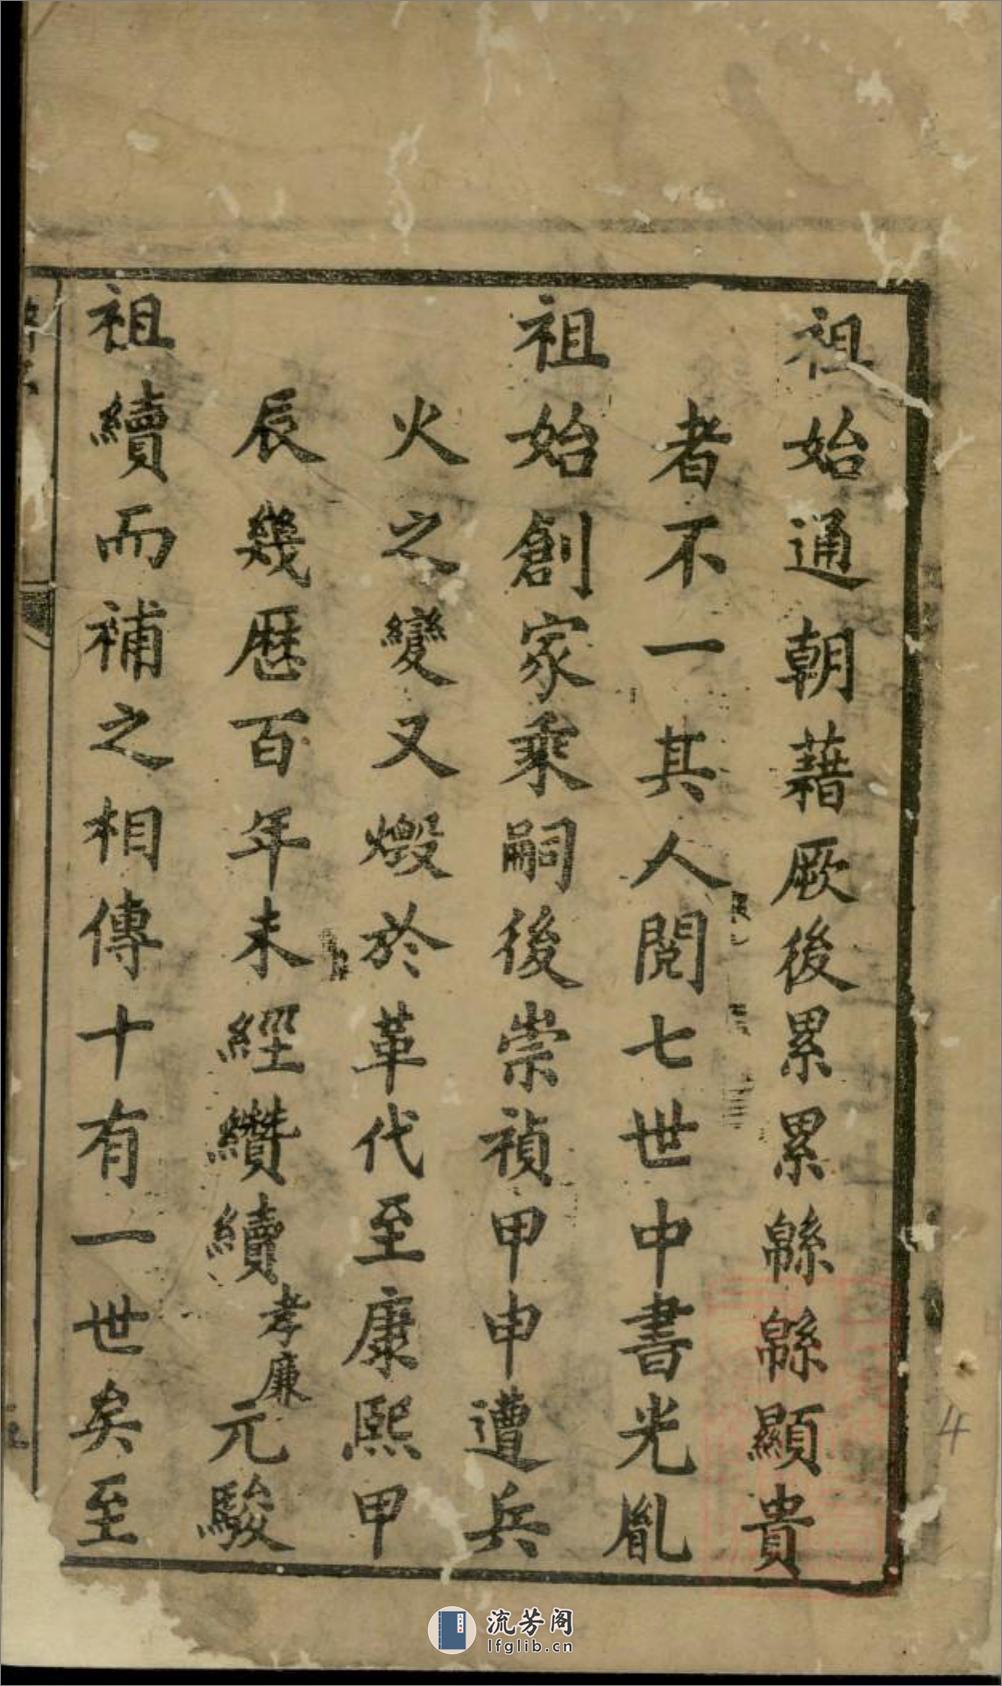 祖始通朝藉厥後累累緜緜顯貴
者不一其人閱七世中書光胤
祖始創家乘嗣後崇禎甲申遭兵
火之變又燬於革代至康熙甲
辰幾歴百年未經纘續孝廉元駿
祖續而補之相傳十有一世矣至
4
流芳阁
lfglib.cn